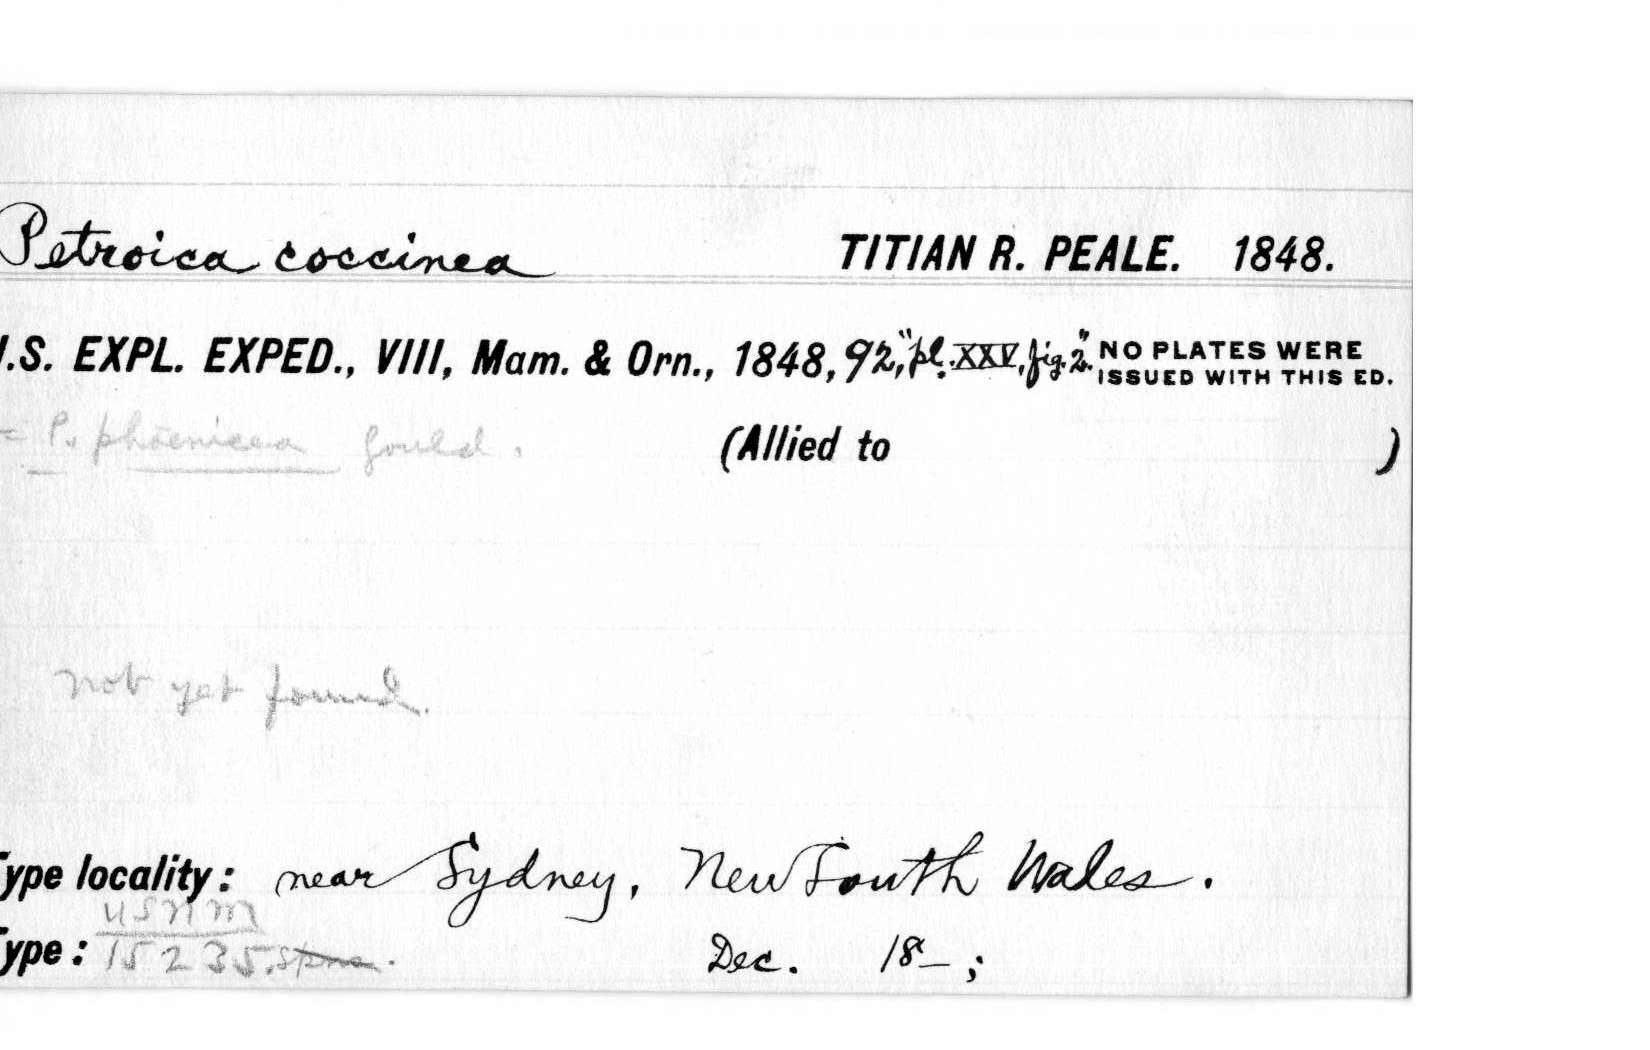 Petroica coccinea TITIAN R. PEALE. 1848.
.S. EXPL. EXPED., VIII, Mam. & Orn., 1848, 92, "pl. XXV, fig. 2." NO PLATES WERE
ISSUED WITH THIS ED.
= P. phoenicea Gould. (Allied to )
not yet found.
Type locality: near Sydney, New South Wales.
USNM
Type: 15235. Dec. 18–;